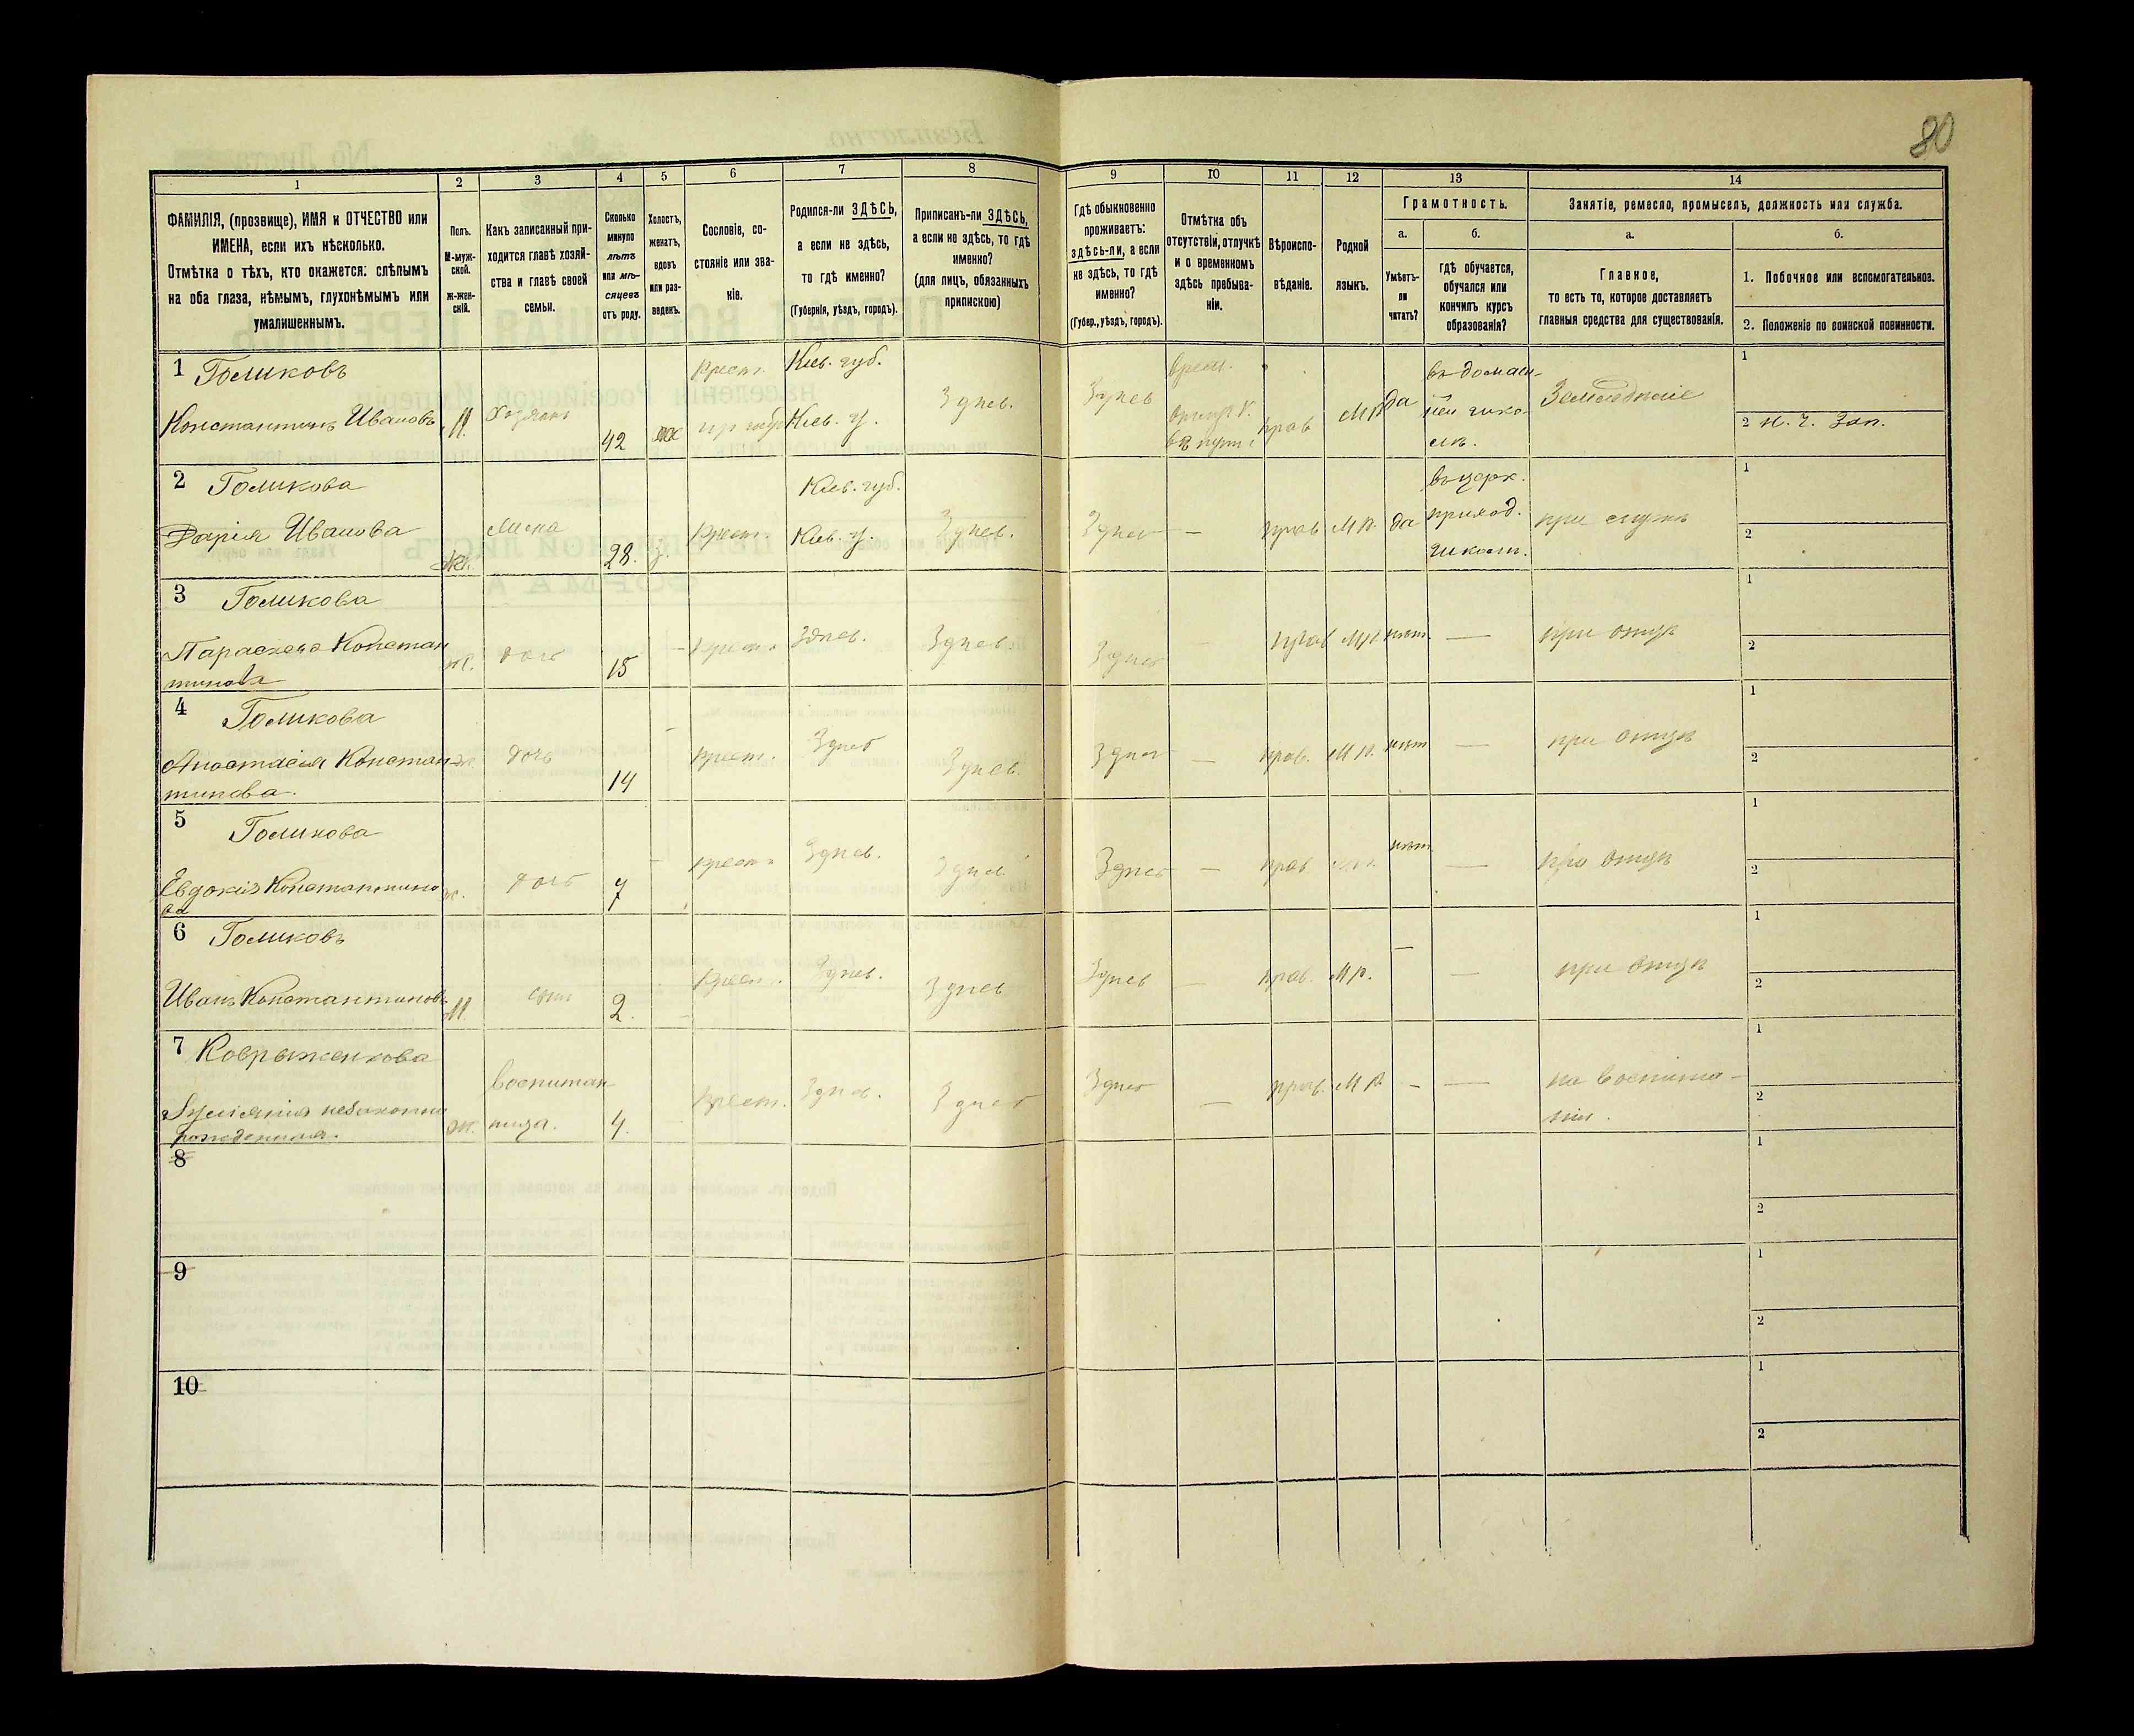 80
1
2
3
4
5
6
7
8
9
10
11
12
13
14
ФАМИЛІЯ, (прозвище), ИМЯ и ОТЧЕСТВО или
ИМЕНА, если ихъ нѣсколько.
Отмѣтка о тѣхъ, кто окажется: слѣпымъ
на оба глаза, нѣмымъ, глухонѣмымъ или
умалишеннымъ.
Полъ.
М-муж-
ской.
Ж-жен-
скій.
Какъ записанный при-
ходится главѣ хозяй-
ства и главѣ своей
семьи.
Сколько
минуло
лѣтъ
или мѣ-
сяцевъ
отъ роду.
Холостъ,
женатъ,
вдовъ
или раз-
веденъ.
Сословіе, со-
стояніе или зва-
ніе.
Родился-ли ЗДѢСЬ,
а если не здѣсь,
то гдѣ именно?
(Губернія, уѣздъ, городъ).
Приписанъ-ли ЗДѢСЬ,
а если не здѣсь, то гдѣ
именно?
(для лицъ, обязанныхъ
припискою)
Гдѣ обыкновенно
проживаетъ:
здѣсь-ли, а если
не здѣсь, то гдѣ
именно?
(Губер., уѣздъ, городъ).
Отмѣтка объ
отсутствіи, отлучкѣ
и о временномъ
здѣсь пребыва-
ніи.
Вѣроиспо-
вѣданіе.
Родной
языкъ.
Грамотность.
а.
Умѣетъ-
ли
читать?
б.
гдѣ обучается,
обучался или
кончилъ курсъ
образованія?
Занятіе, ремесло, промыселъ, должность или служба.
а.
Главное,
то есть то, которое доставляетъ
главныя средства для существованія.
б.
1. Побочное или вспомогательное.
2. Положеніе по воинской повинности.
1 Голиковъ
Константинъ Ивановъ М. Хозяинъ 42
Крест.
Кіев. губ.
Кіев. у.
Здѣсь.
Здѣсь
прав
М Р
да
въ домаш-
ней шко-
лѣ.
Земледѣліе
1
2 Н. Ч. Зап.
2 Голикова
Дарія Иванова Ж. жена 28. з. Крест.
Кіев. губ.
Кіев. у.
Здѣсь. Здѣсь — прав М Р. да
въ церк.
приход.
школѣ.
при мужѣ
1
2
3 Голикова
Параскева Констан
тинова
ж. дочь 15 - Крест. Здѣсь. Здѣсь. Здѣсь — прав М Р нѣт. — при отцѣ
1
2
4 Голикова
Анастасія Констан
тинова.
ж. дочь 14 - Крест. Здѣсь Здѣсь. Здѣсь — прав. М Р. нѣт — при отцѣ
1
2
5 Голикова
Евдокія Константино
ва
ж. дочь 7 - Крест. Здѣсь. Здѣсь Здѣсь — прав М Р. нѣт — при отцѣ
1
2
6 Голиковъ
Иванъ Константиновъ М. сынъ 2. Крест. Здѣсь. Здѣсь Здѣсь — прав. М Р. — — при отцѣ
1
2
7 Коврыженкова
незаконно
рожденная.
ж.
воспитан
ница.
4. Крест. Здѣсь. Здѣсь Здѣсь — прав. М Р. - —
на воспита-
ніи.
1
2
8
1
2
9
1
2
10
1
2